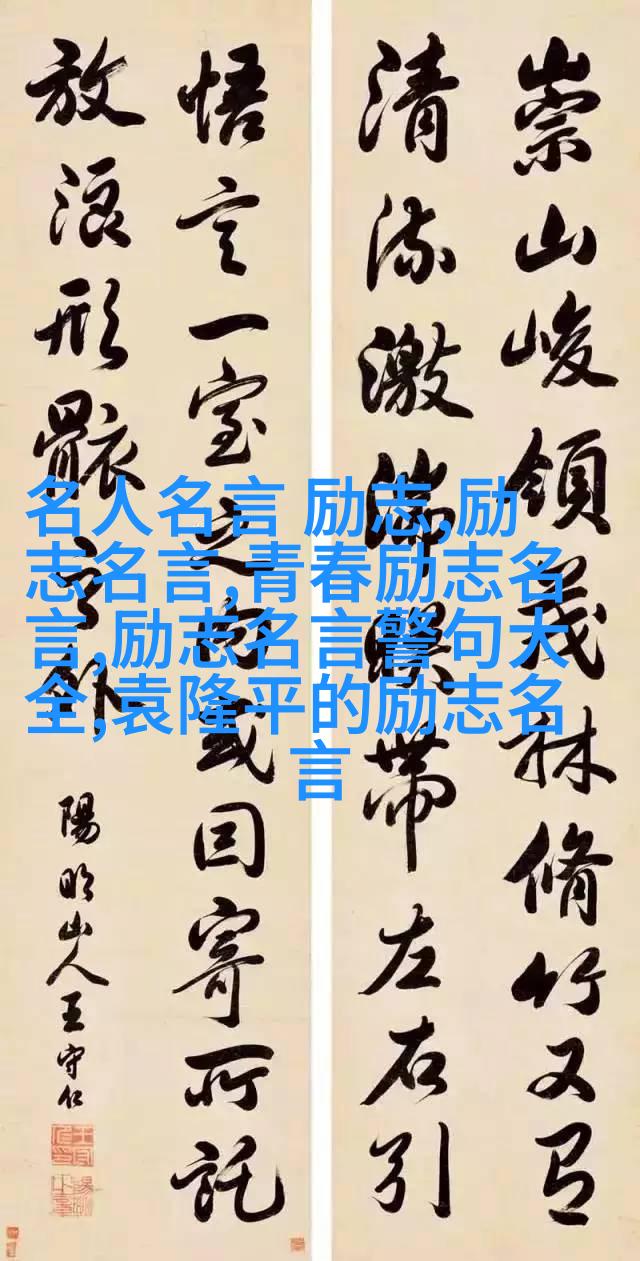 崇山峻領茂林脩竹又有
清流激湍暎帶左右引
悟言一室之內或因寄所託
放浪形骸之外
陽明山人王守仁
名人名言 励志,励
志名言,青春励志名
言,励志名言警句大
全,袁隆平的励志名
言